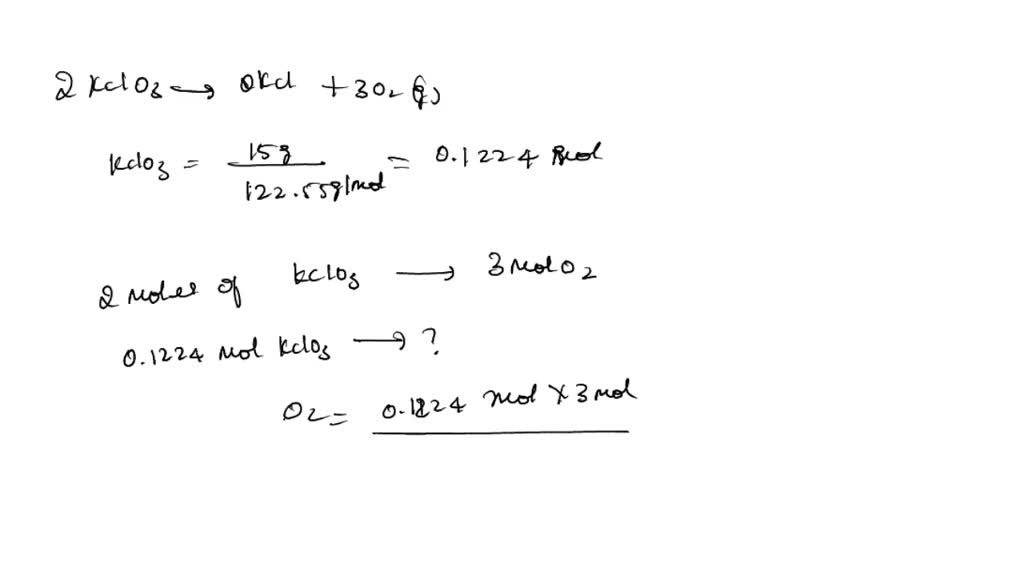 2 KClO3 → 2KCl + 3O2 (g)
KClO3 = 15g / 122.55g/mol = 0.1224 mol
2 moles of KClO3 → 3 mol O2
0.1224 mol KClO3 → ?
O2 = 0.1224 mol × 3 mol